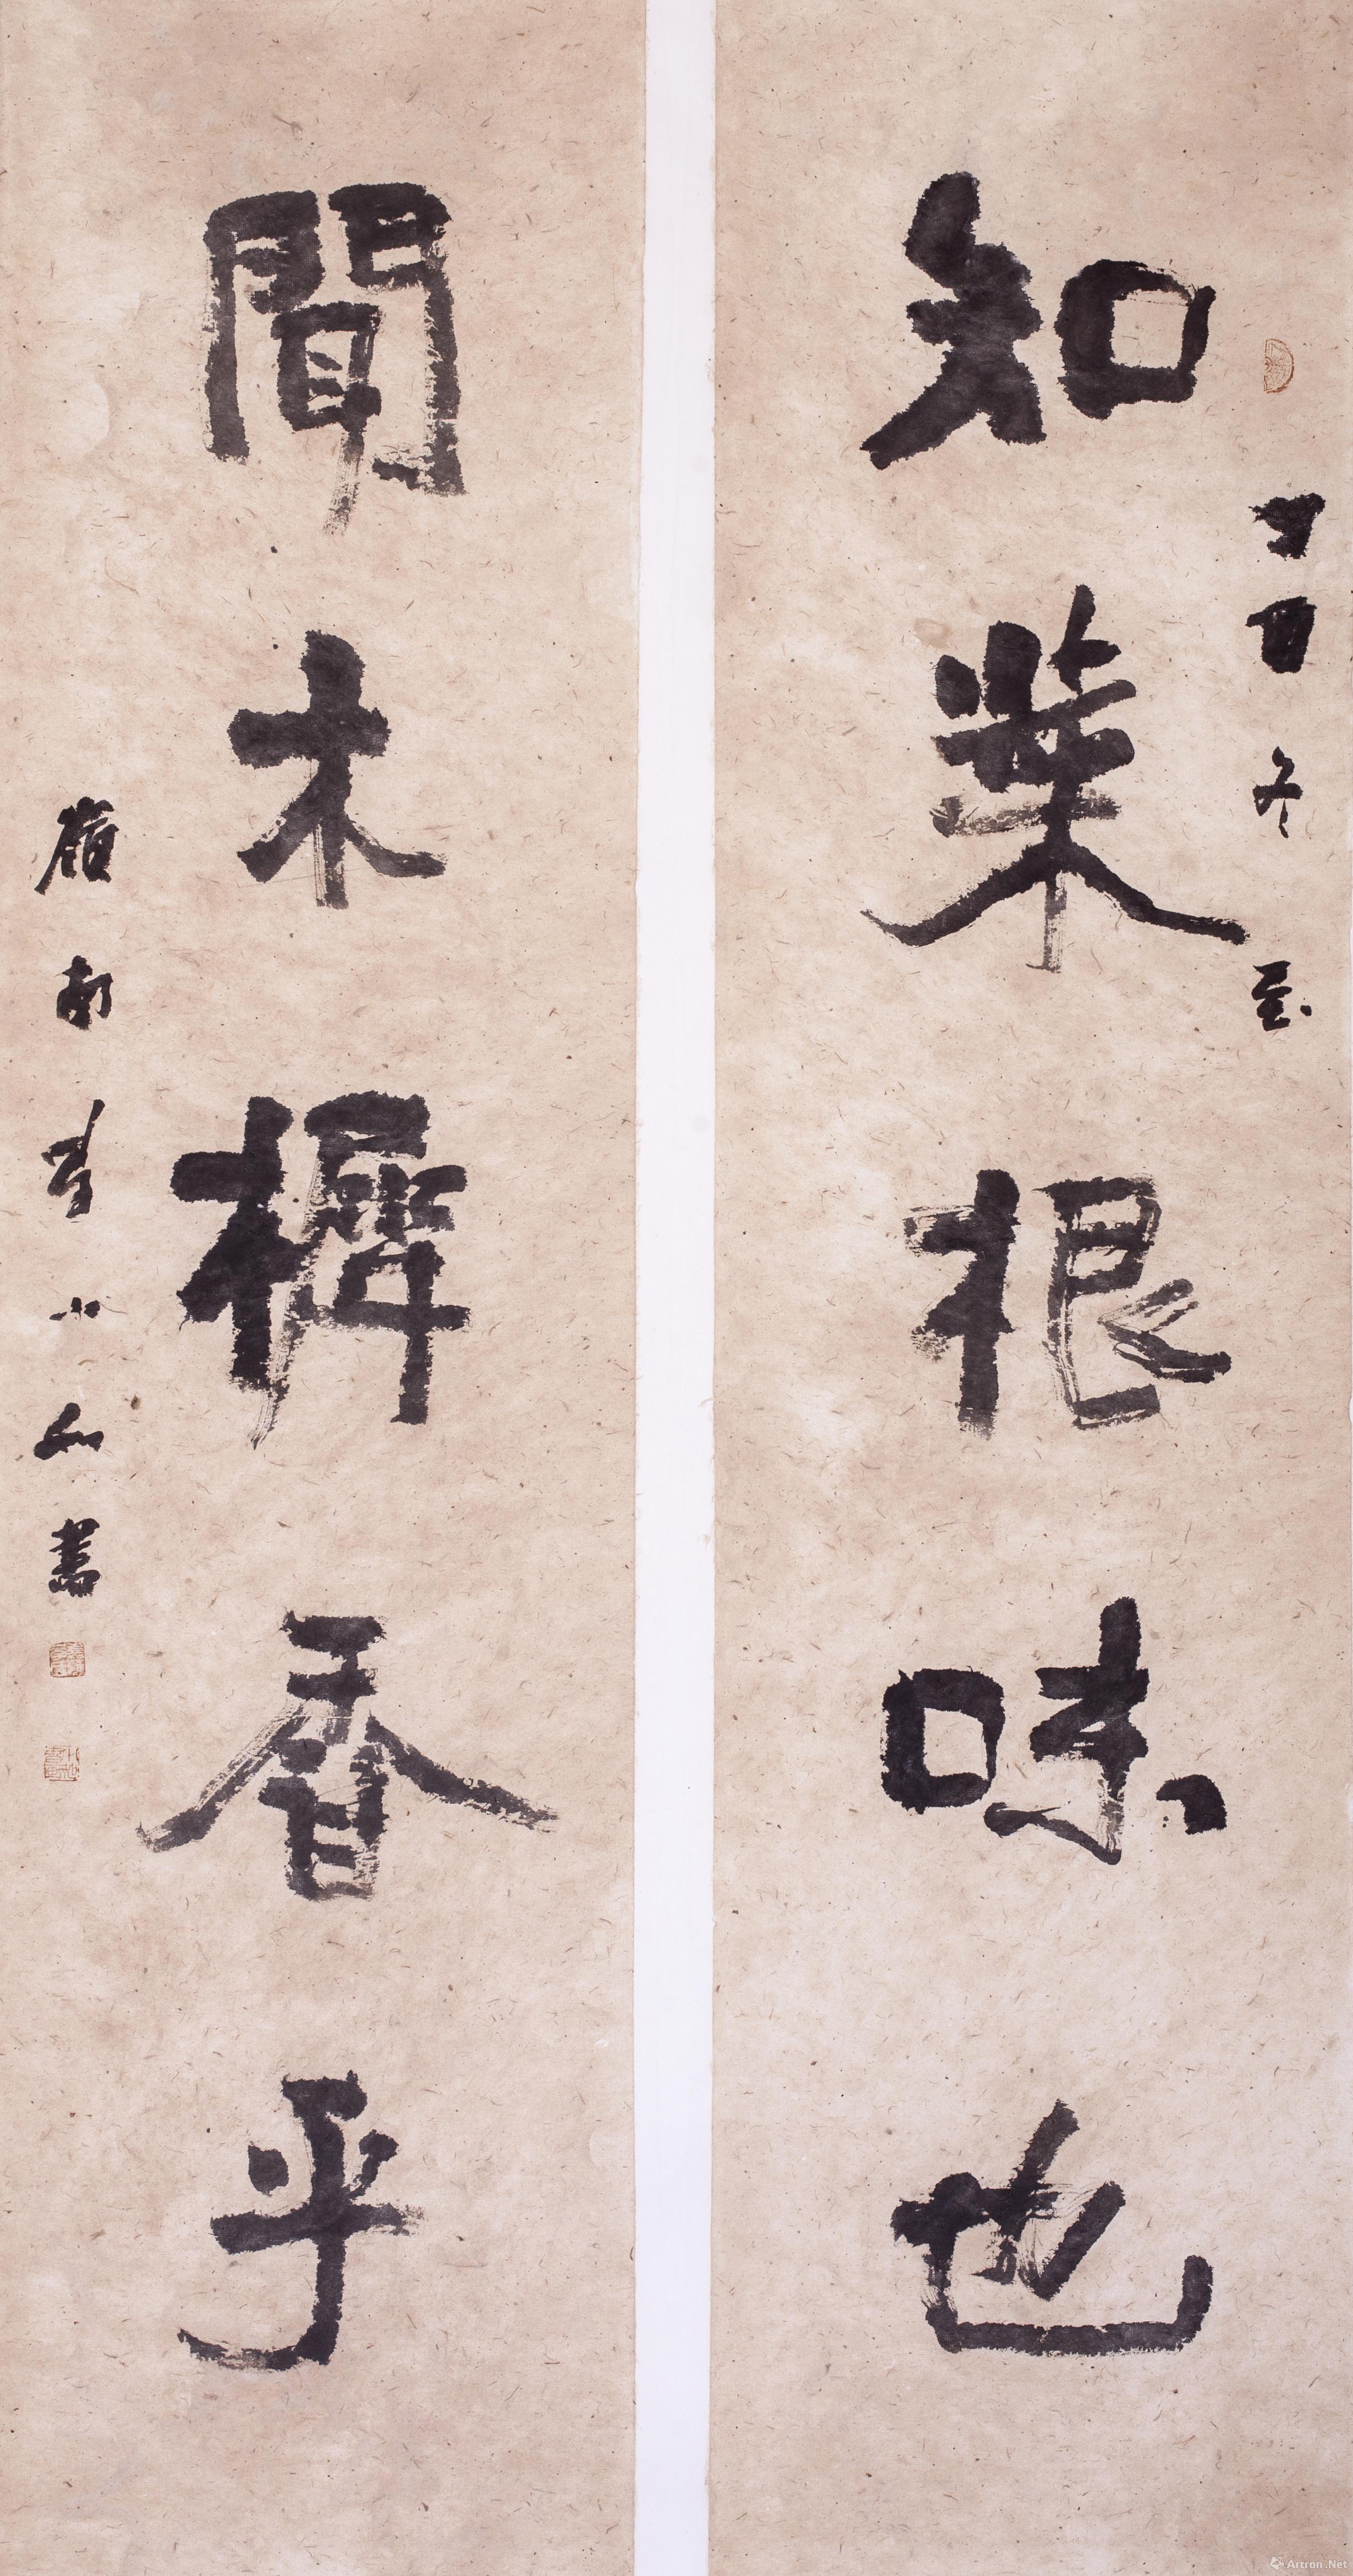 丁酉冬至
知菜根味也
聞木樨香乎
嶺南李小如書